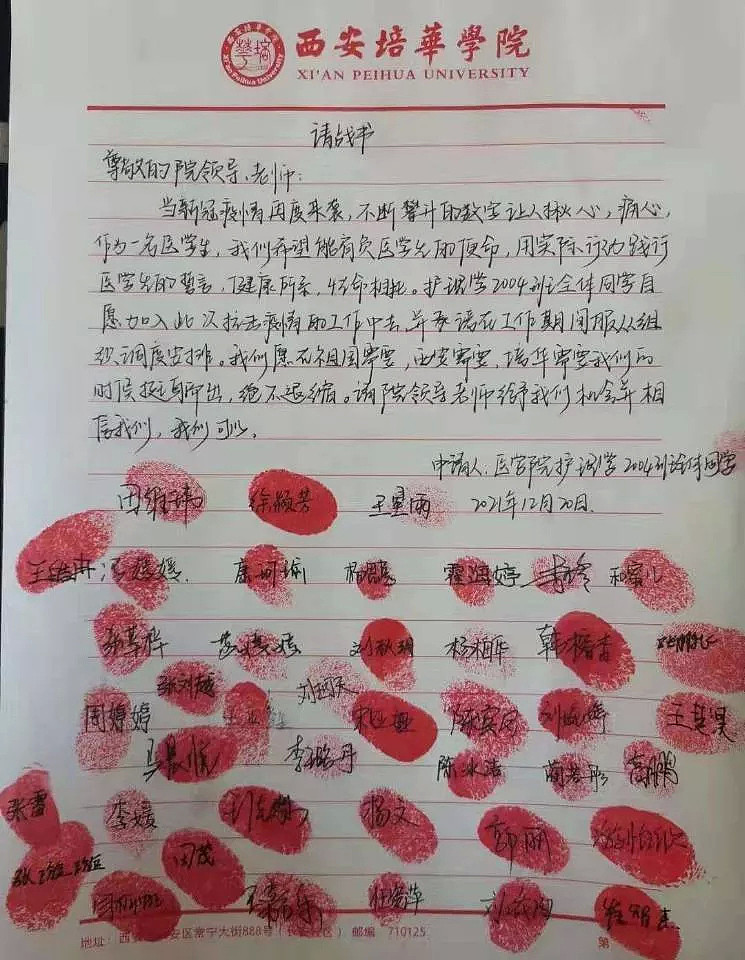 西安培華學院
XI'AN PEIHUA UNIVERSITY
请战书
尊敬的院领导、老师:
当新冠疫情再度来袭,不断攀升的数字让人揪心,痛心,
作为一名医学生,我们希望能肩负医学生的使命,用实际行动践行
医学生的誓言,健康所系,性命相托。护理学2004班全体同学自
愿加入此次抗击疫情的工作中去,并承诺在工作期间服从组
织调度安排。我们愿在祖国需要,西安需要,培华需要我们的
时候挺身而出,绝不退缩。请院领导老师给予我们机会并相
信我们,我们可以。
申请人:医学院护理学2004班全体同学
田维玮 徐颖芳 王星雨 2021年12月20日
康珂瑜 霍海婷
刘秋玥 杨柏桦 韩榕青
张刘越
周婷婷 陈奕因 王楚淇
李璐丹
陈冰洁 蔺芳彤 高鹏
张雷 李媛 杨文 郭丽
田茂
崔智杰
地址:西安 安区常宁大街888号(长安 区) 邮编 710125
第